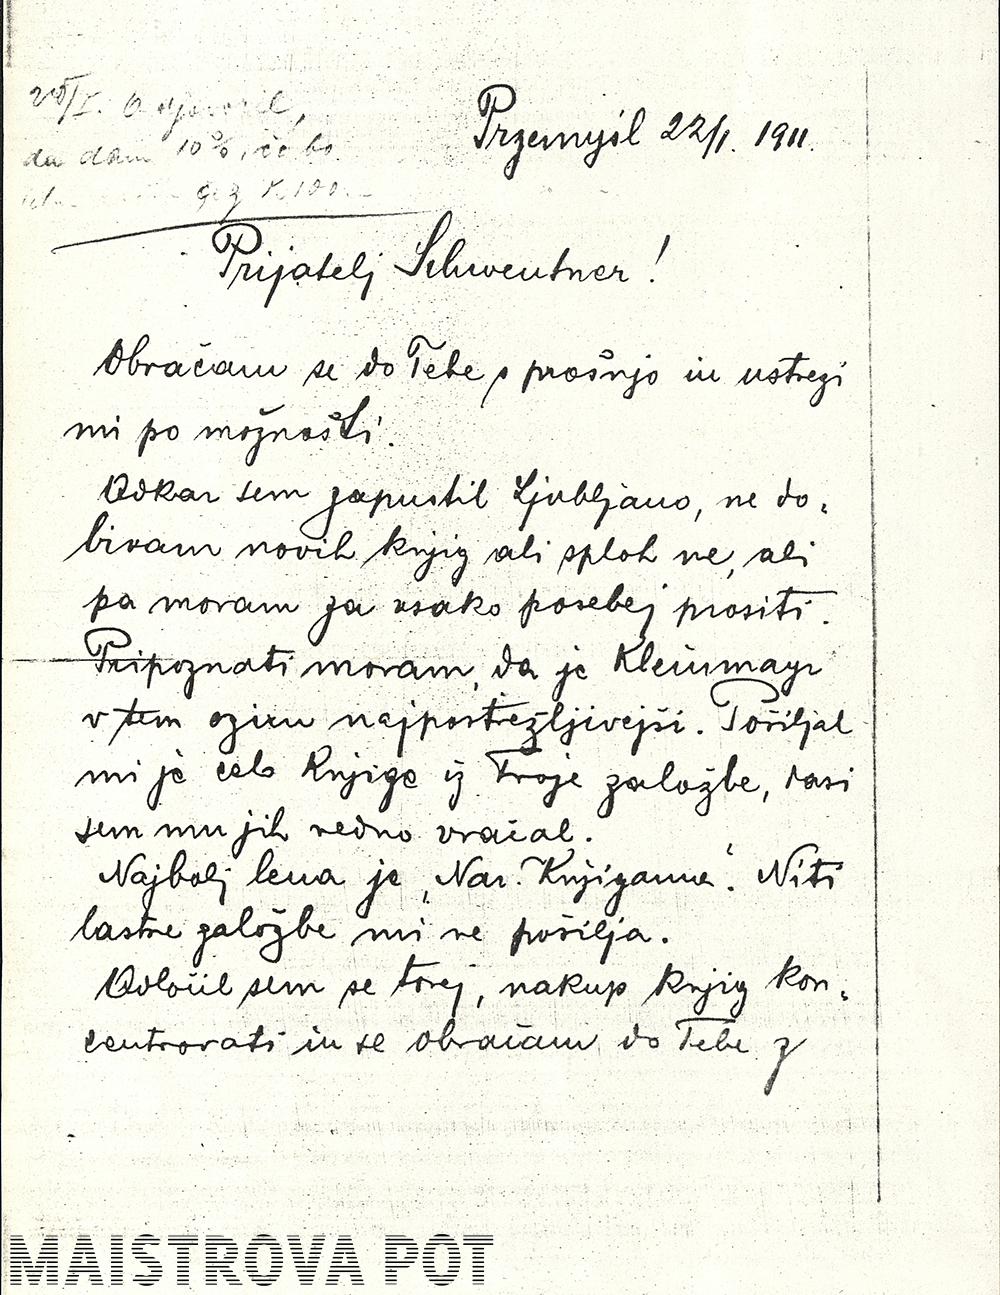 25/I. Odgovoril,
da dam 10%, če bo
čez K 100.—
Przemyśl 22/1. 1911.
Prijatelj Schwentner!
Obračam se do Tebe s prošnjo in ustrezi
mi po možnosti.
Odkar sem zapustil Ljubljano, ne do-
bivam novih knjig ali sploh ne, ali
pa moram za vsako posebej prositi.
Pripoznati moram, da je Kleinmayr
v tem oziru najpostrežljivejši. Pošiljal
mi je celo knjige iz Tvoje založbe, dasi
sem mu jih redno vračal.
Najbolj lena je „Nar. Knjigarna“. Niti
lastne založbe mi ne pošilja.
Odločil sem se torej, nakup knjig kon-
centrovati in se obračam do Tebe z
MAISTROVA POT